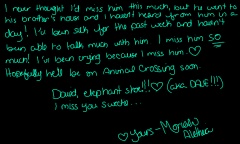 I never thought I'd miss him this much, but he went to
his brother's house and I haven't heard from him in a
day! I've been sick for the past week and hadn't
been able to talk much with him. I miss him SO
much! I've been crying because I miss him. ♡
Hopefully he'll be on Animal Crossing soon.
David, elephant shoe!!! ♡ (aka DAVE!!!)
I miss you sweets...
♡ Yours - Moriah